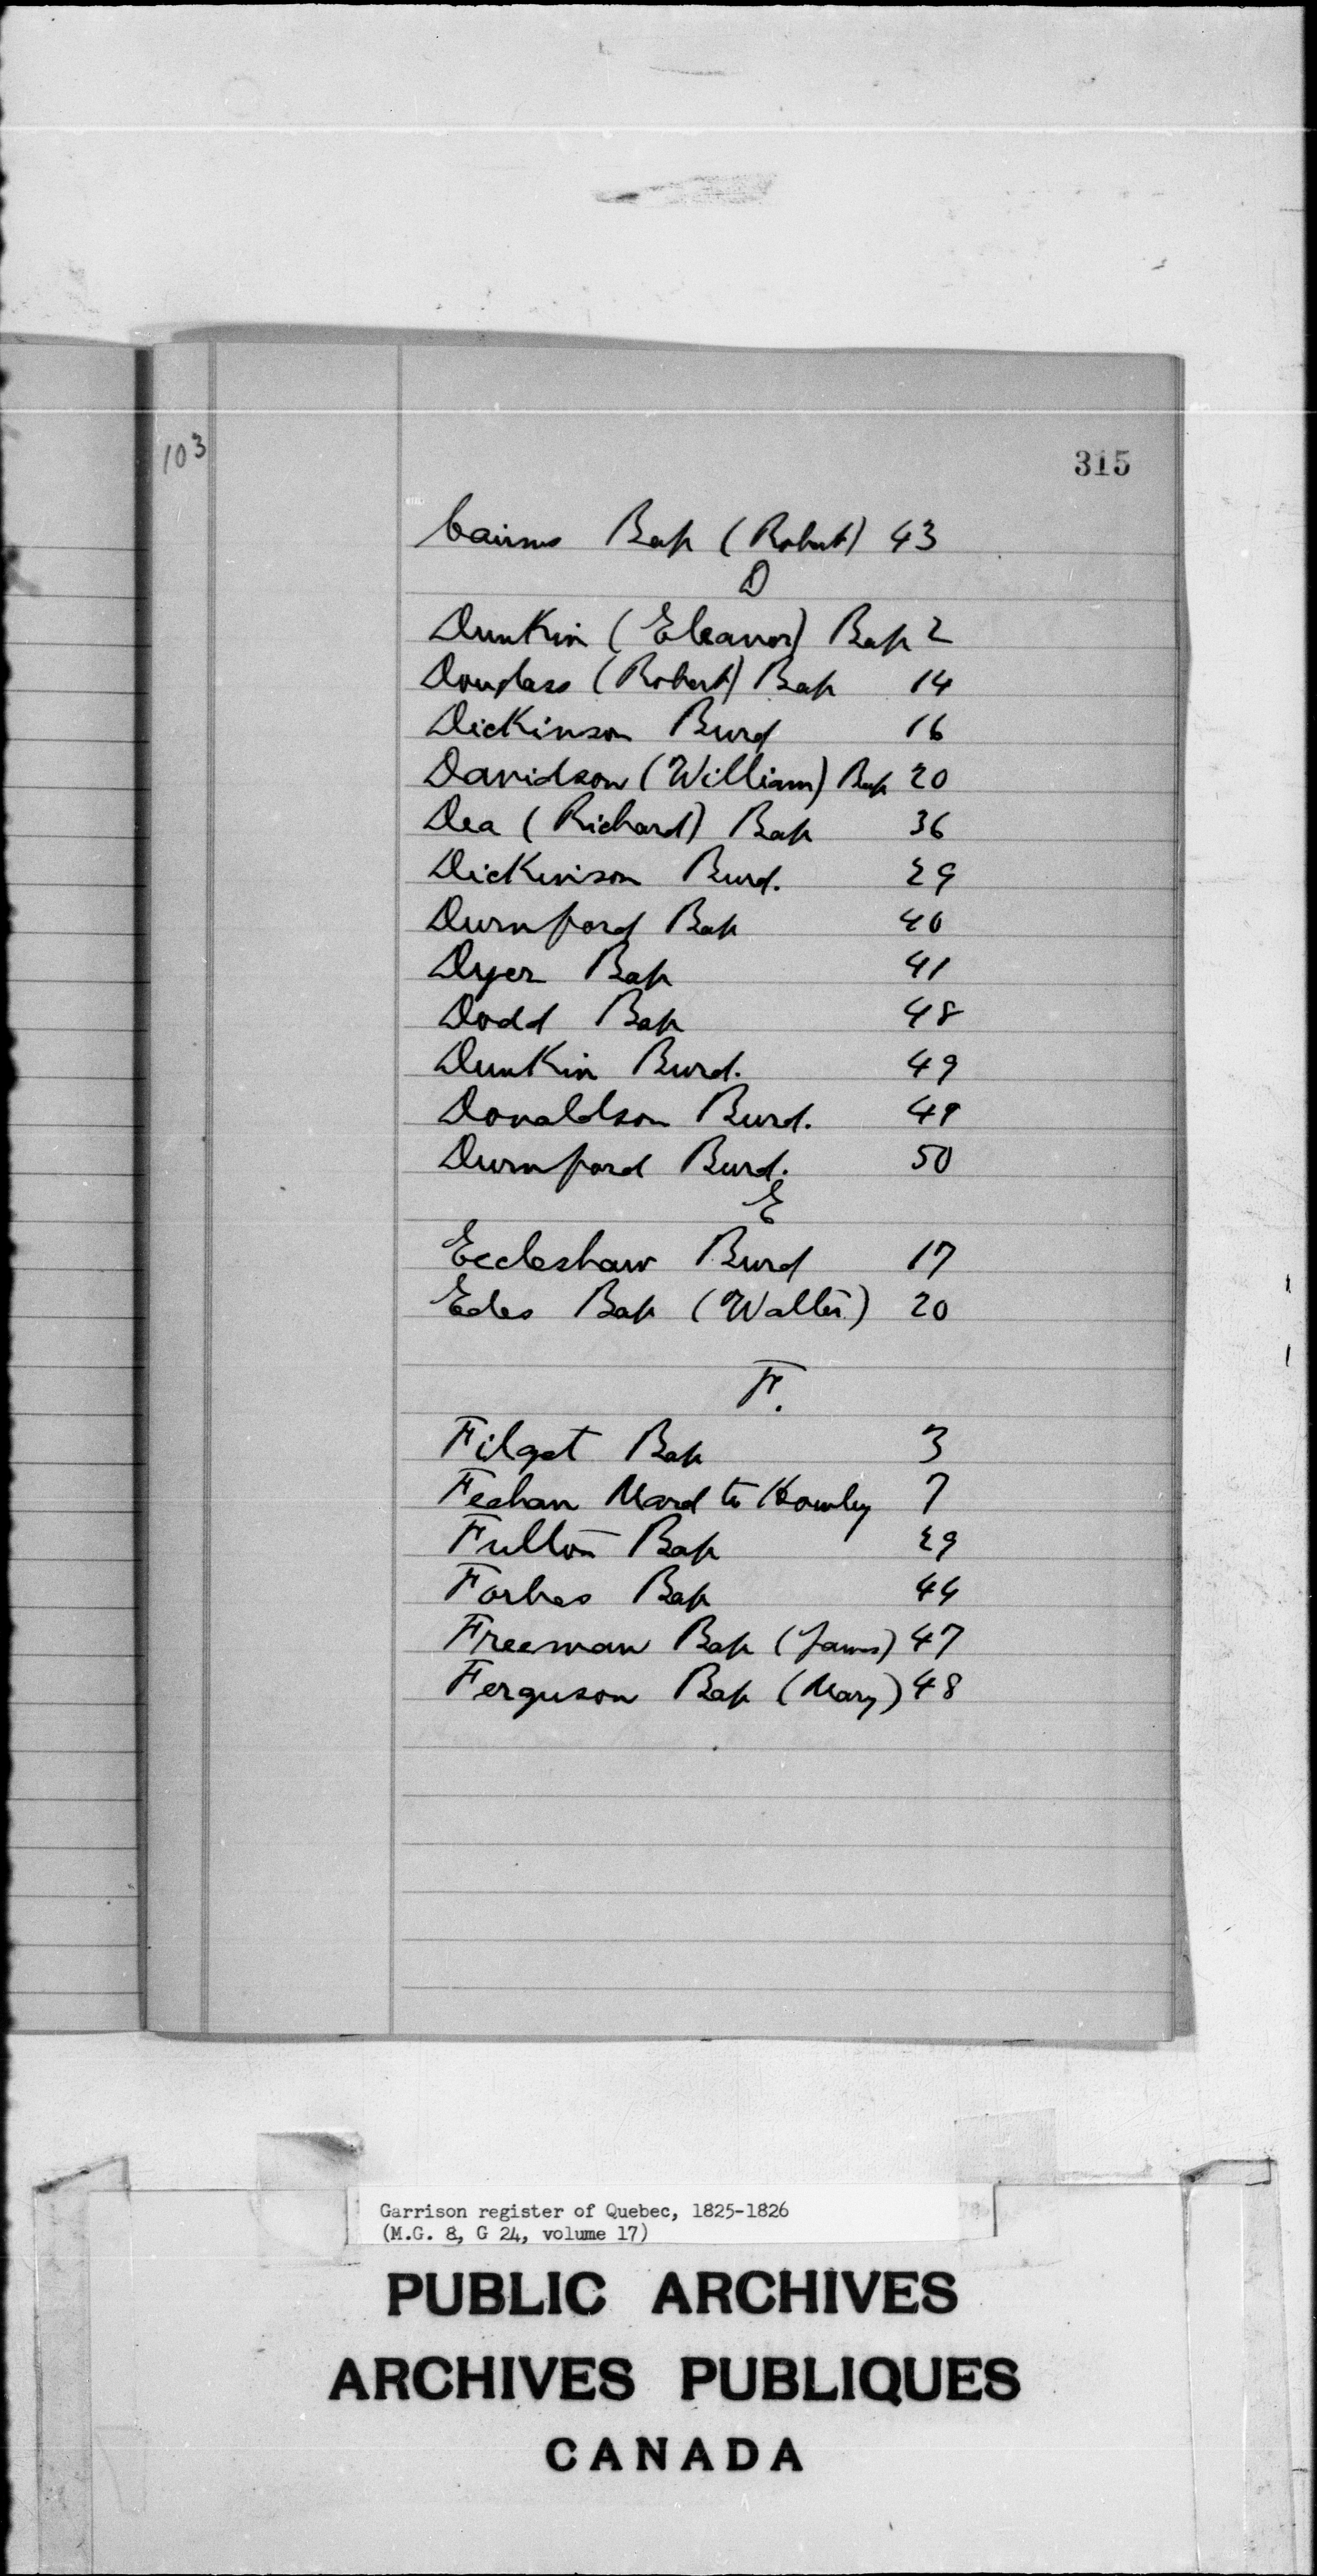 103
315
Cairns Bap (Robert) 43
D
Dunkin (Eleanor) Bap 2
Douglass (Robert) Bap 14
Dickinson Burd 16
Davidson (William) Bap 20
Dea (Richard) Bap 36
Dickinson Burd. 29
Durnford Bap 40
Dyer Bap 41
Dodd Bap 48
Dunkin Burd. 49
Donaldson Burd. 49
Durnford Burd. 50
E
Eccleshaw Burd 17
Edes Bap (Walter) 20
F.
Filgat Bap 3
Feehan Mard to 7
Fulton Bap 29
Forbes Bap 44
Freeman Bap (James) 47
Ferguson Bap (Mary) 48
Garrison register of Quebec, 1825-1826
(M.G. 8, G 24, volume 17)
PUBLIC ARCHIVES
ARCHIVES PUBLIQUES
CANADA